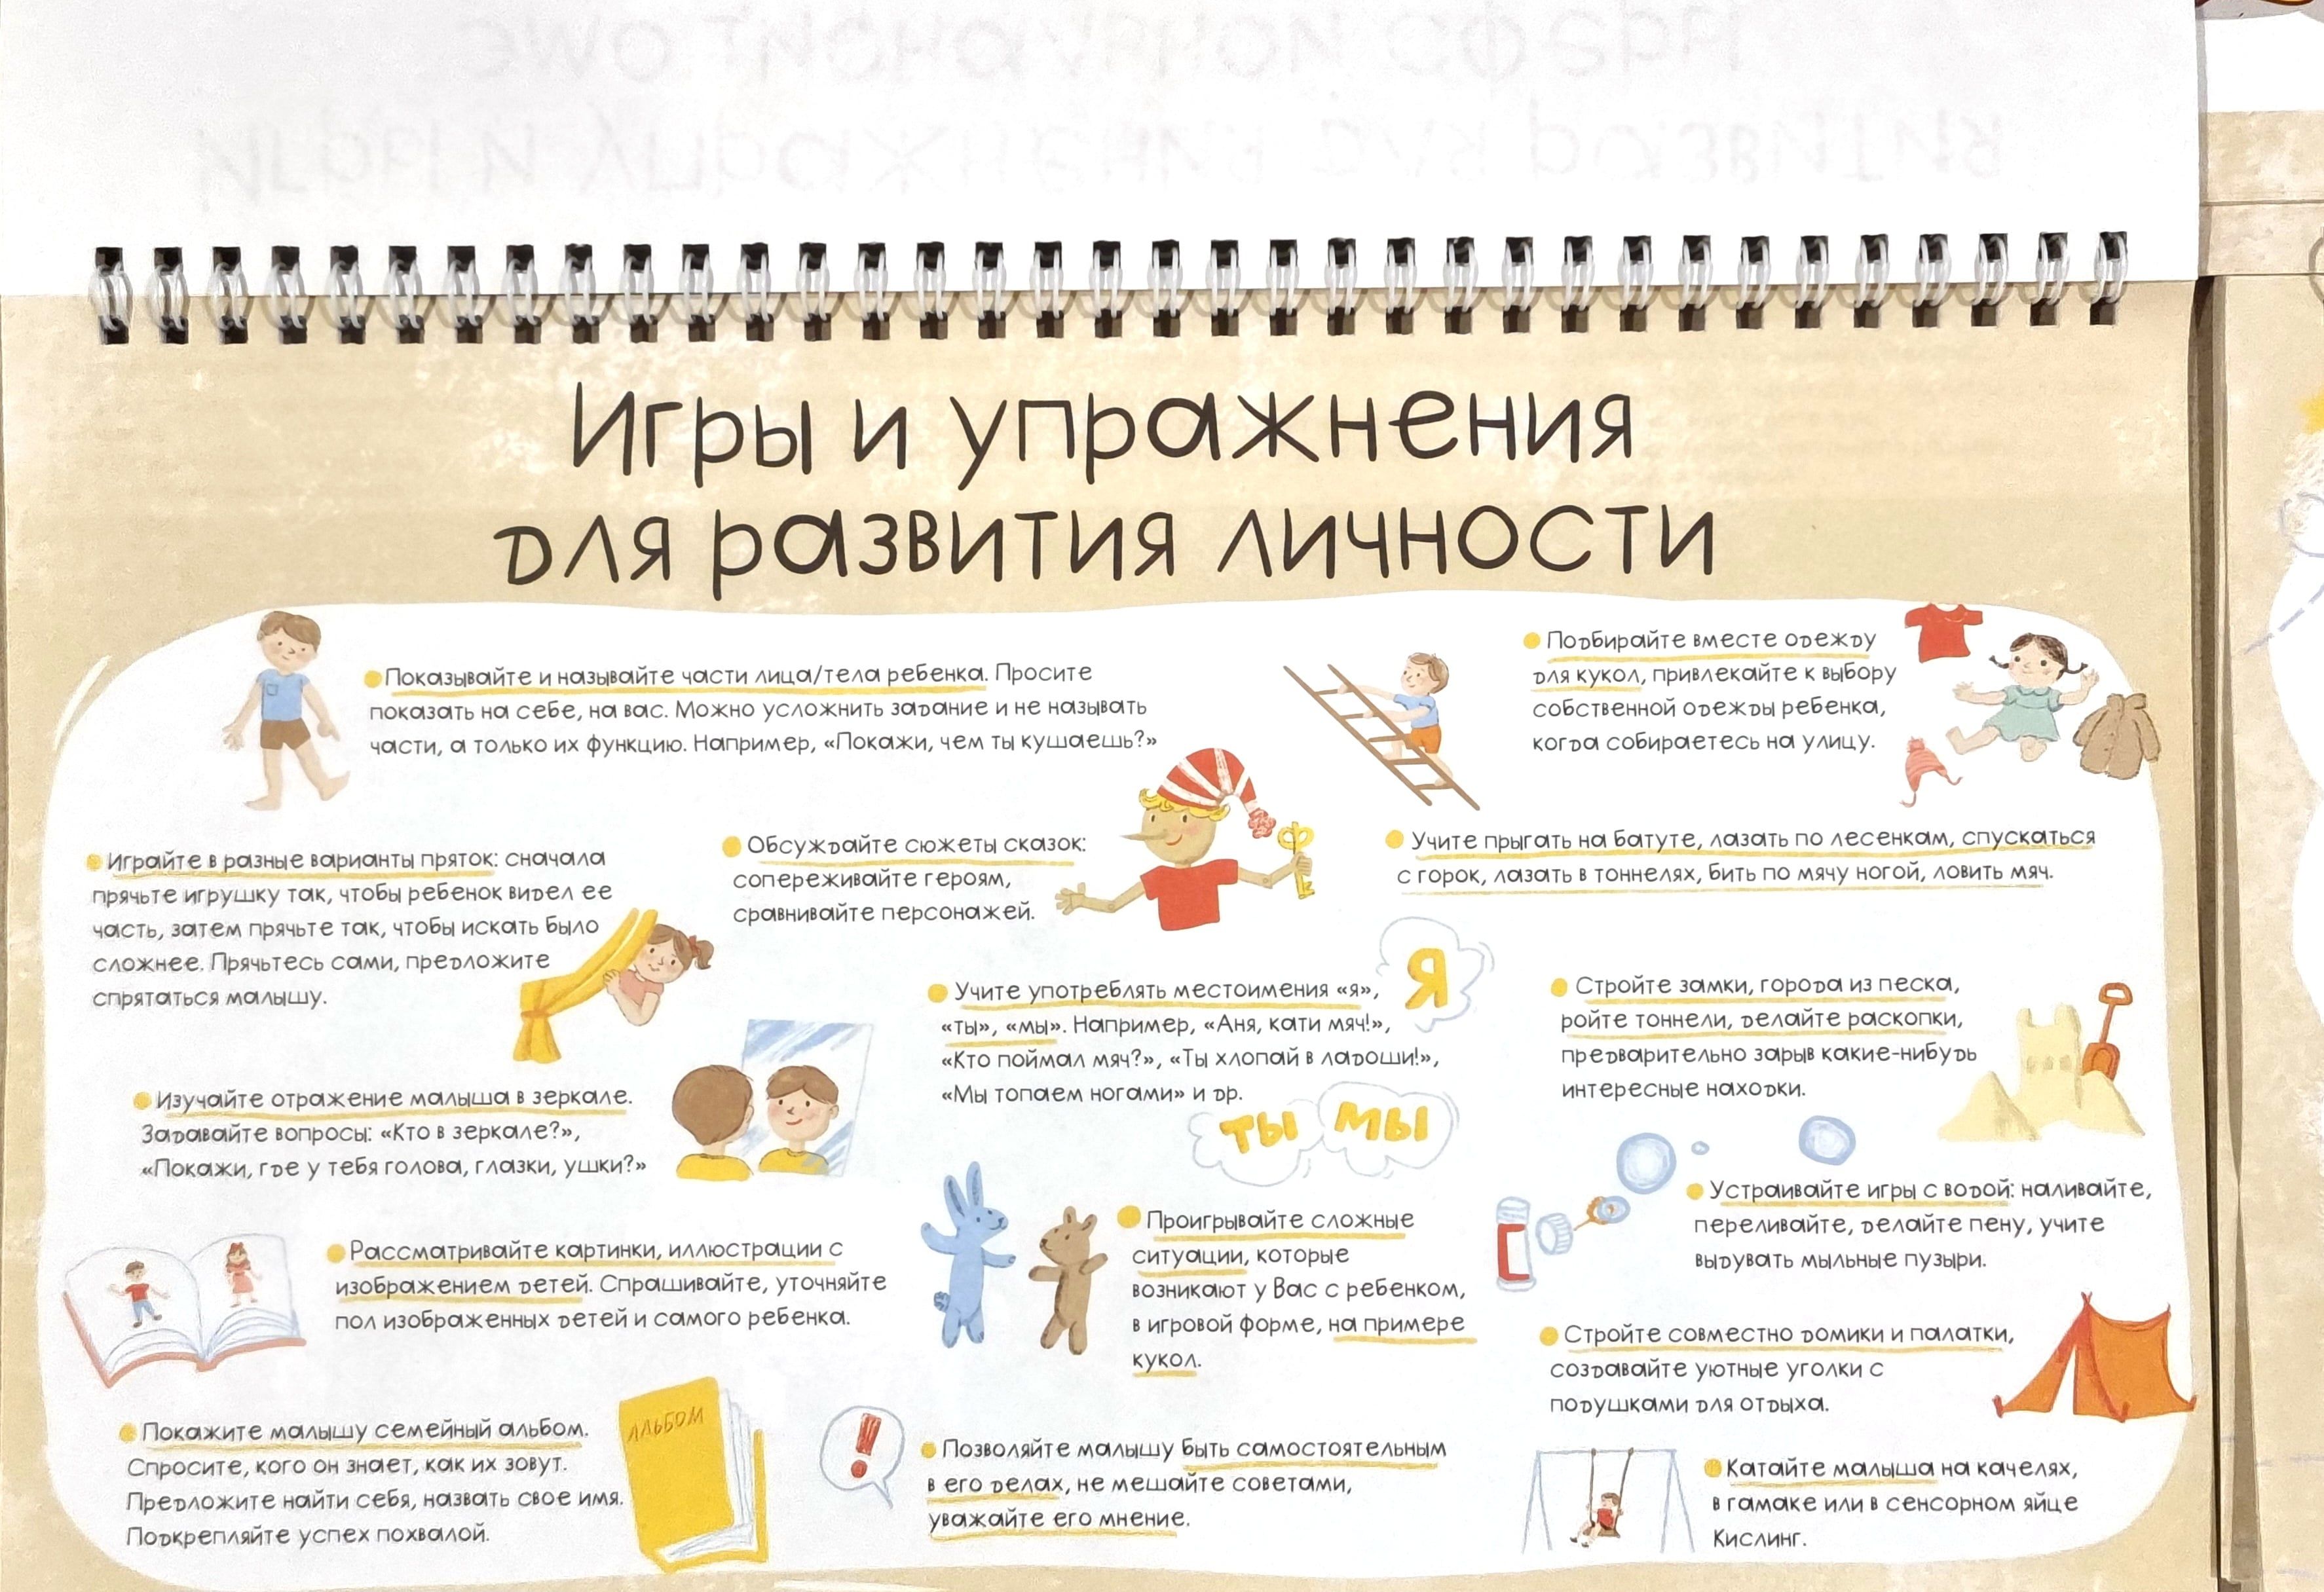 Игры и упражнения
для развития личности
Показывайте и называйте части лица/тела ребенка. Просите
показать на себе, на вас. Можно усложнить задание и не называть
части, а только их функцию. Например, «Покажи, чем ты кушаешь?»
Подбирайте вместе одежду
для кукол, привлекайте к выбору
собственной одежды ребенка,
когда собираетесь на улицу.
Играйте в разные варианты пряток: сначала
прячьте игрушку так, чтобы ребенок видел ее
часть, затем прячьте так, чтобы искать было
сложнее. Прячьтесь сами, предложите
спрятаться малышу.
Обсуждайте сюжеты сказок:
сопереживайте героям,
сравнивайте персонажей.
Учите прыгать на батуте, лазать по лесенкам, спускаться
с горок, лазать в тоннелях, бить по мячу ногой, ловить мяч.
Учите употреблять местоимения «я»,
«ты», «мы». Например, «Аня, кати мяч!»,
«Кто поймал мяч?», «Ты хлопай в ладоши!»,
«Мы топаем ногами» и др.
Я
ты мы
Стройте замки, города из песка,
ройте тоннели, делайте раскопки,
предварительно зарыв какие-нибудь
интересные находки.
Изучайте отражение малыша в зеркале.
Задавайте вопросы: «Кто в зеркале?»,
«Покажи, где у тебя голова, глазки, ушки?»
Устраивайте игры с водой: наливайте,
переливайте, делайте пену, учите
выдувать мыльные пузыри.
Рассматривайте картинки, иллюстрации с
изображением детей. Спрашивайте, уточняйте
пол изображенных детей и самого ребенка.
Проигрывайте сложные
ситуации, которые
возникают у Вас с ребенком,
в игровой форме, на примере
кукол.
Стройте совместно домики и палатки,
создавайте уютные уголки с
подушками для отдыха.
Покажите малышу семейный альбом.
Спросите, кого он знает, как их зовут.
Предложите найти себя, назвать свое имя.
Подкрепляйте успех похвалой.
АЛЬБОМ
!
Позволяйте малышу быть самостоятельным
в его делах, не мешайте советами,
уважайте его мнение.
Катайте малыша на качелях,
в гамаке или в сенсорном яйце
Кислинг.